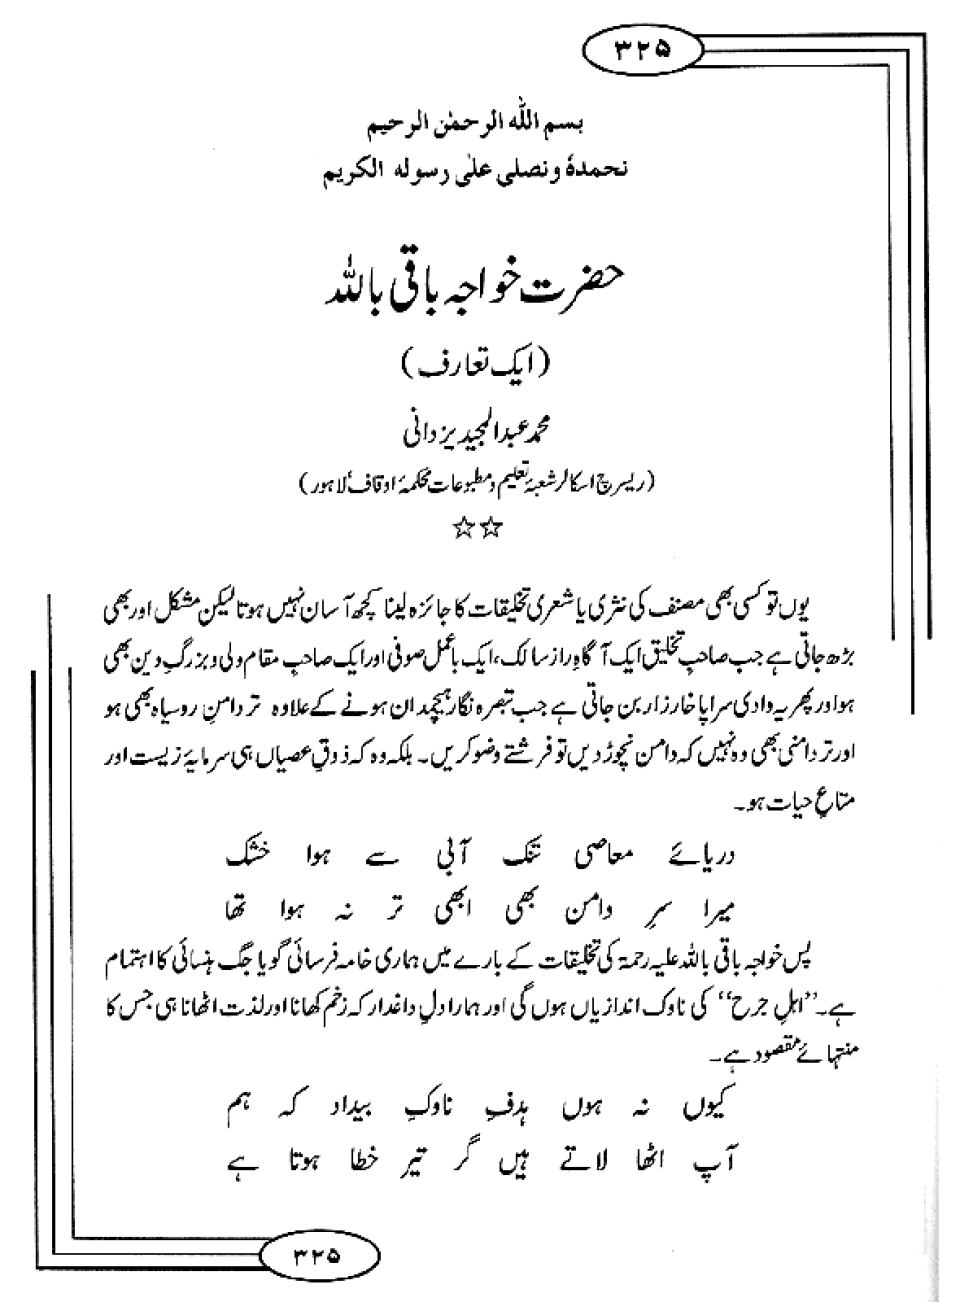 ۳۲۵
بسم الله الرحمٰن الرحیم
نحمدهٗ و نصلی علیٰ رسوله الکریم
حضرت خواجہ باقی باللہ
(ایک تعارف)
محمد عبدالمجید یزدانی
(ریسرچ اسکالر شعبۂ تعلیم و مطبوعات محکمۂ اوقاف لاہور)
☆☆
یوں تو کسی بھی مصنف کی نثری یا شعری تخلیقات کا جائزہ لینا کچھ آسان نہیں ہوتا لیکن مشکل اور بھی
بڑھ جاتی ہے جب صاحبِ تخلیق ایک آگاہِ راز سالک، ایک باعمل صوفی اور ایک صاحبِ مقام ولی و بزرگِ دین بھی
ہو اور پھر یہ وادی سراپا خارزار بن جاتی ہے جب تبصرہ نگار ہیچمدان ہونے کے علاوہ تر دامنِ روسیاہ بھی ہو
اور تر دامنی بھی وہ نہیں کہ دامن نچوڑ دیں تو فرشتے وضو کریں۔ بلکہ وہ کہ ذوقِ عصیاں ہی سرمایۂ زیست اور
متاعِ حیات ہو۔
دریائے معاصی تنک آبی سے ہوا خشک
میرا سرِ دامن بھی ابھی تر نہ ہوا تھا
پس خواجہ باقی باللہ علیہ رحمۃ کی تخلیقات کے بارے میں ہماری خامہ فرسائی گویا جگ ہنسائی کا اہتمام
ہے۔ ’’اہلِ جرح‘‘ کی ناوک اندازیاں ہوں گی اور ہمارا دلِ داغدار کہ زخم کھانا اور لذت اٹھانا ہی جس کا
منتہائے مقصود ہے۔
کیوں نہ ہوں ہدفِ ناوکِ بیداد کہ ہم
آپ اٹھا لاتے ہیں گر تیر خطا ہوتا ہے
۳۲۵